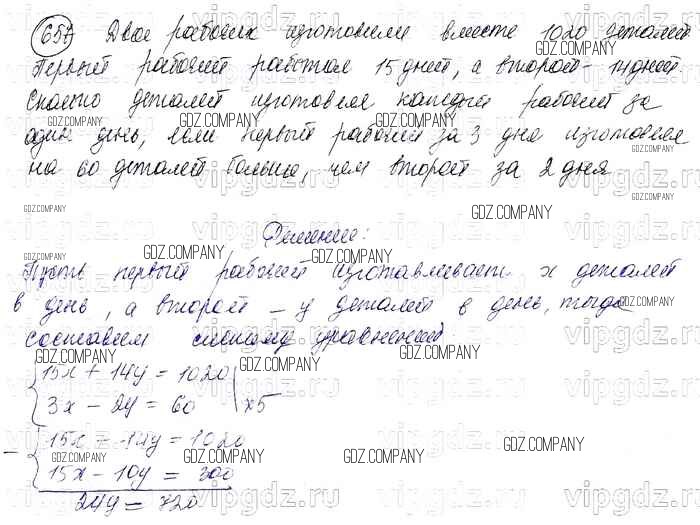 657 Двое рабочих изготовили вместе 1020 деталей
Первый рабочий работал 15 дней, а второй - 14 дней.
Сколько деталей изготовлял каждый рабочий за
один день, если первый рабочий за 3 дня изготовлял
на 60 деталей больше, чем второй за 2 дня
Решение:
Пусть первый рабочий изготавливает x деталей
в день, а второй - y деталей в день, тогда
составляем систему уравнений.
15x + 14y = 1020
3x - 2y = 60 | x5
15x + 14y = 1020
15x - 10y = 300
24y = 720
vipgdz.ru
GDZ.COMPANY